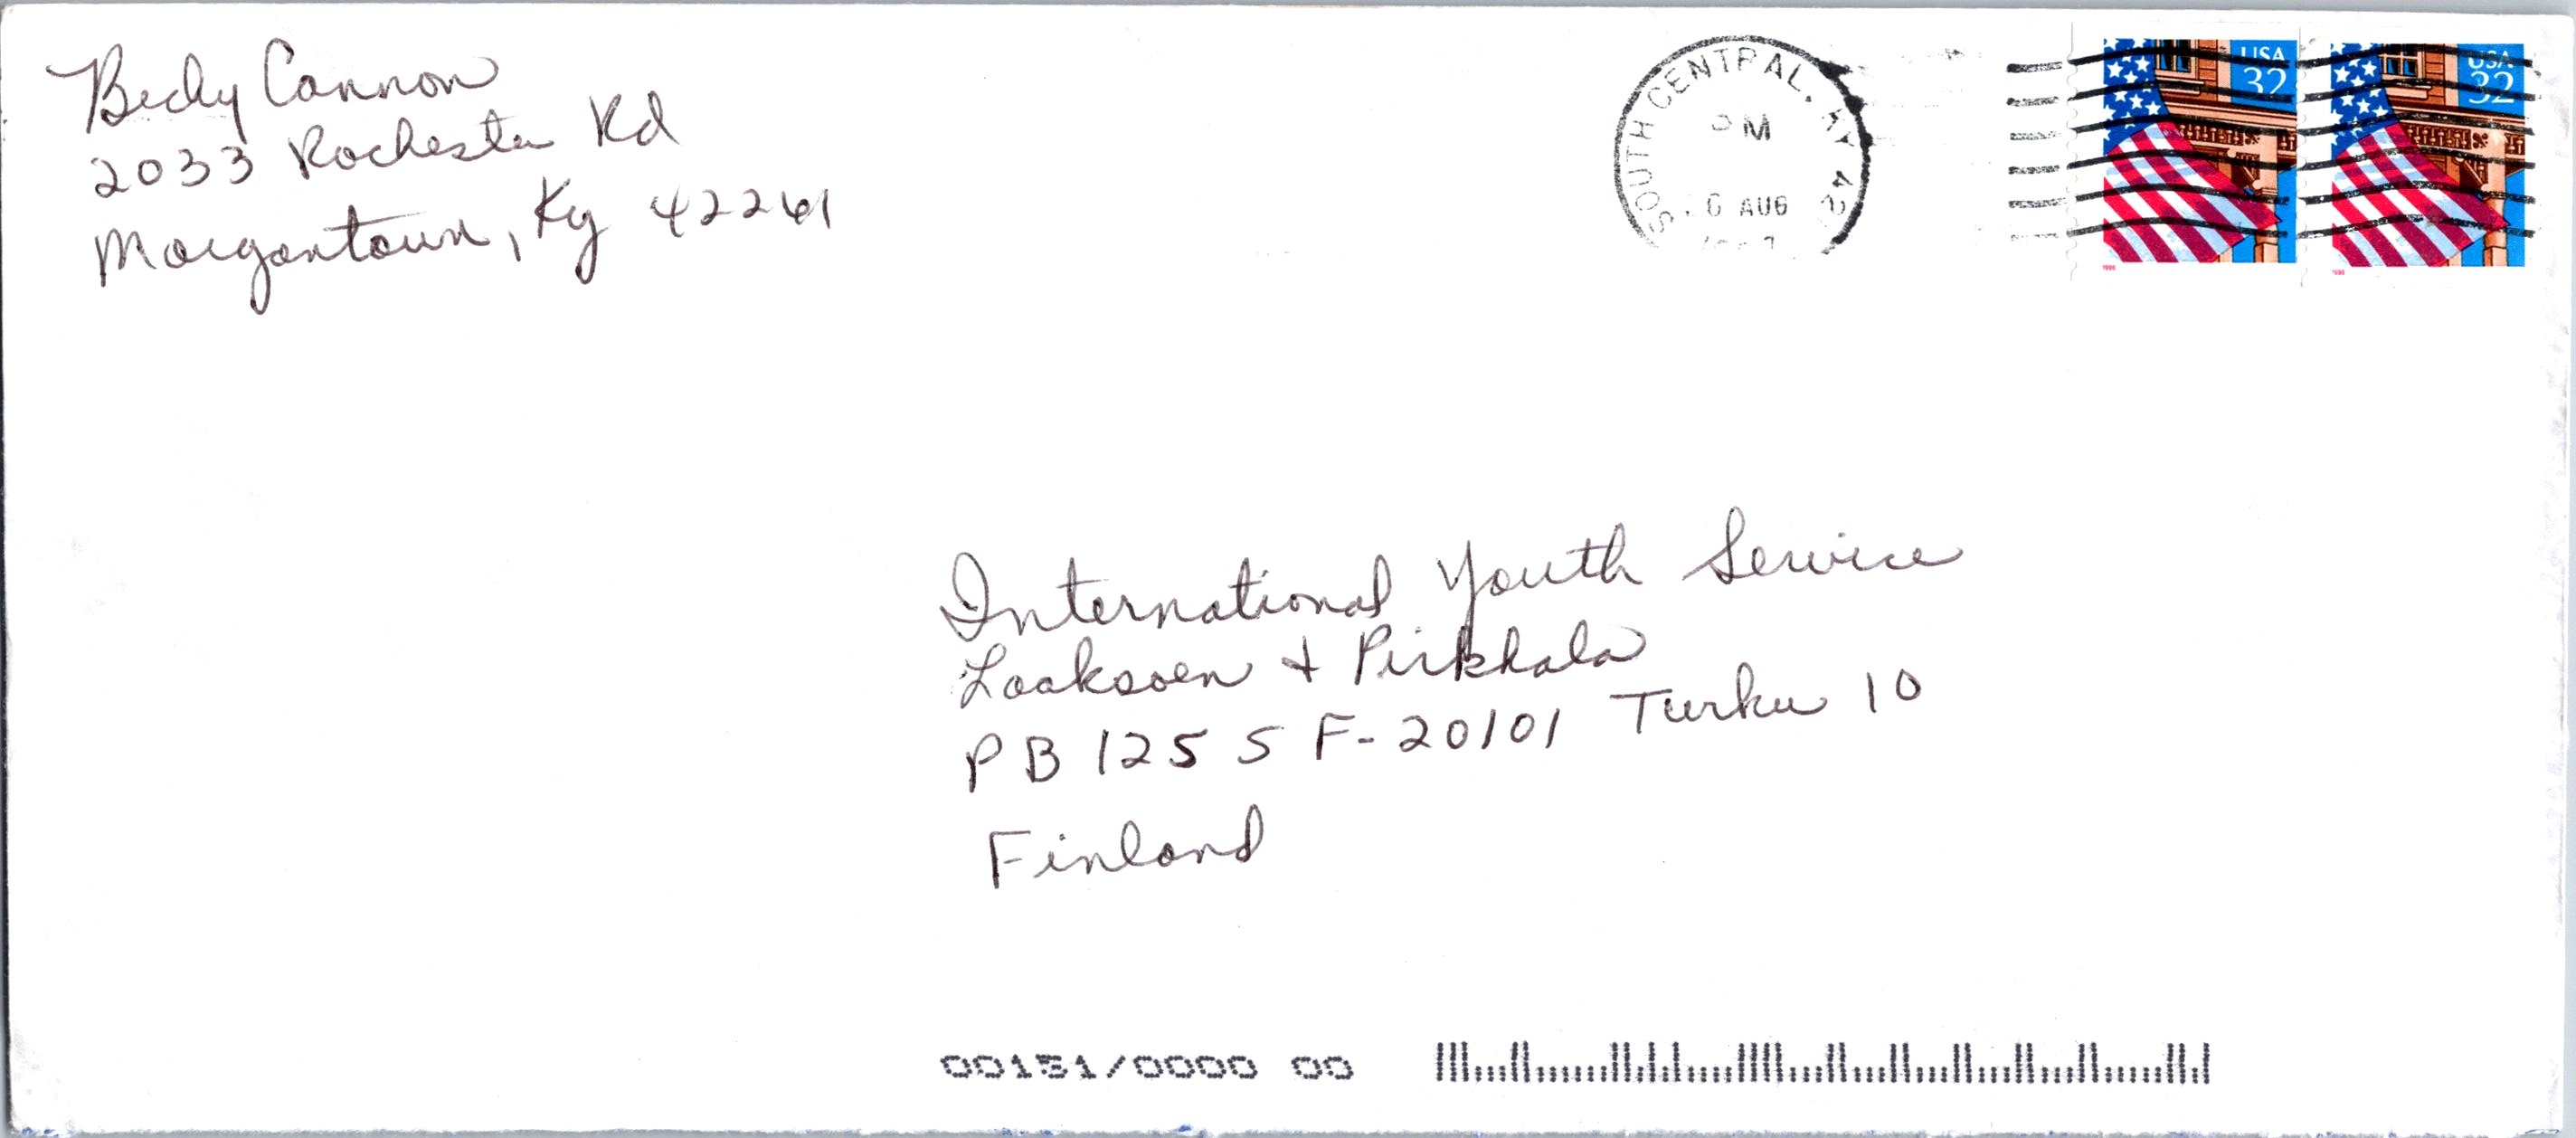 Becky Cannon
2033 Rochester Rd
Morgantown, Ky 42261
SOUTH CENTRAL, KY 42
PM
AUG
USA
32
USA
32
1996
International Youth Service
Laaksoen + Pirkhala
PB 125 S F-20101 Turku 10
Finland
00151/0000 00